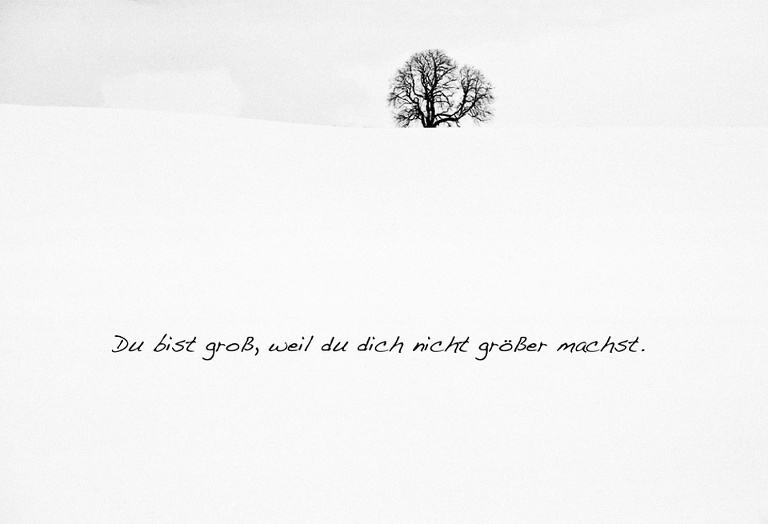 Du bist groß, weil du dich nicht größer machst.